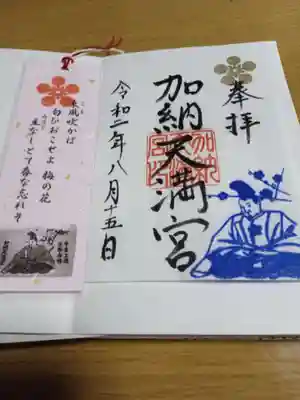 奉拝
加納天満宮
令和二年八月十五日
東風吹かば
匂ひおこせよ 梅の花
主なしとて春な忘れそ